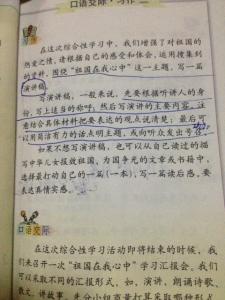 口语交际·习作二
在这次综合性学习中，我们增强了对祖国的
热爱之情。请根据自己的感受和体会，运用搜集到
的资料，围绕“祖国在我心中”这一主题，写一篇
演讲稿。
写演讲稿，一般来说，先要根据听讲人的身
份，写上适当的称呼，然后写演讲的主要内容。注
意结合具体材料把要表达的观点说清楚，最后可
以用简洁有力的话点明主题，或向听众发出号召。
如果不想写演讲稿，也可以从自己读过的描
写中华儿女报效祖国、为国争光的文章或书籍中，
选择最打动自己的一篇（一本），写一篇读后感，要
表达真情实感。
口语交际
在这次综合性学习活动即将结束的时候，我
们来召开一次“祖国在我心中”学习汇报会。我们
可以采取不同的汇报形式，如，演讲、朗诵诗歌、
散文、讲故事